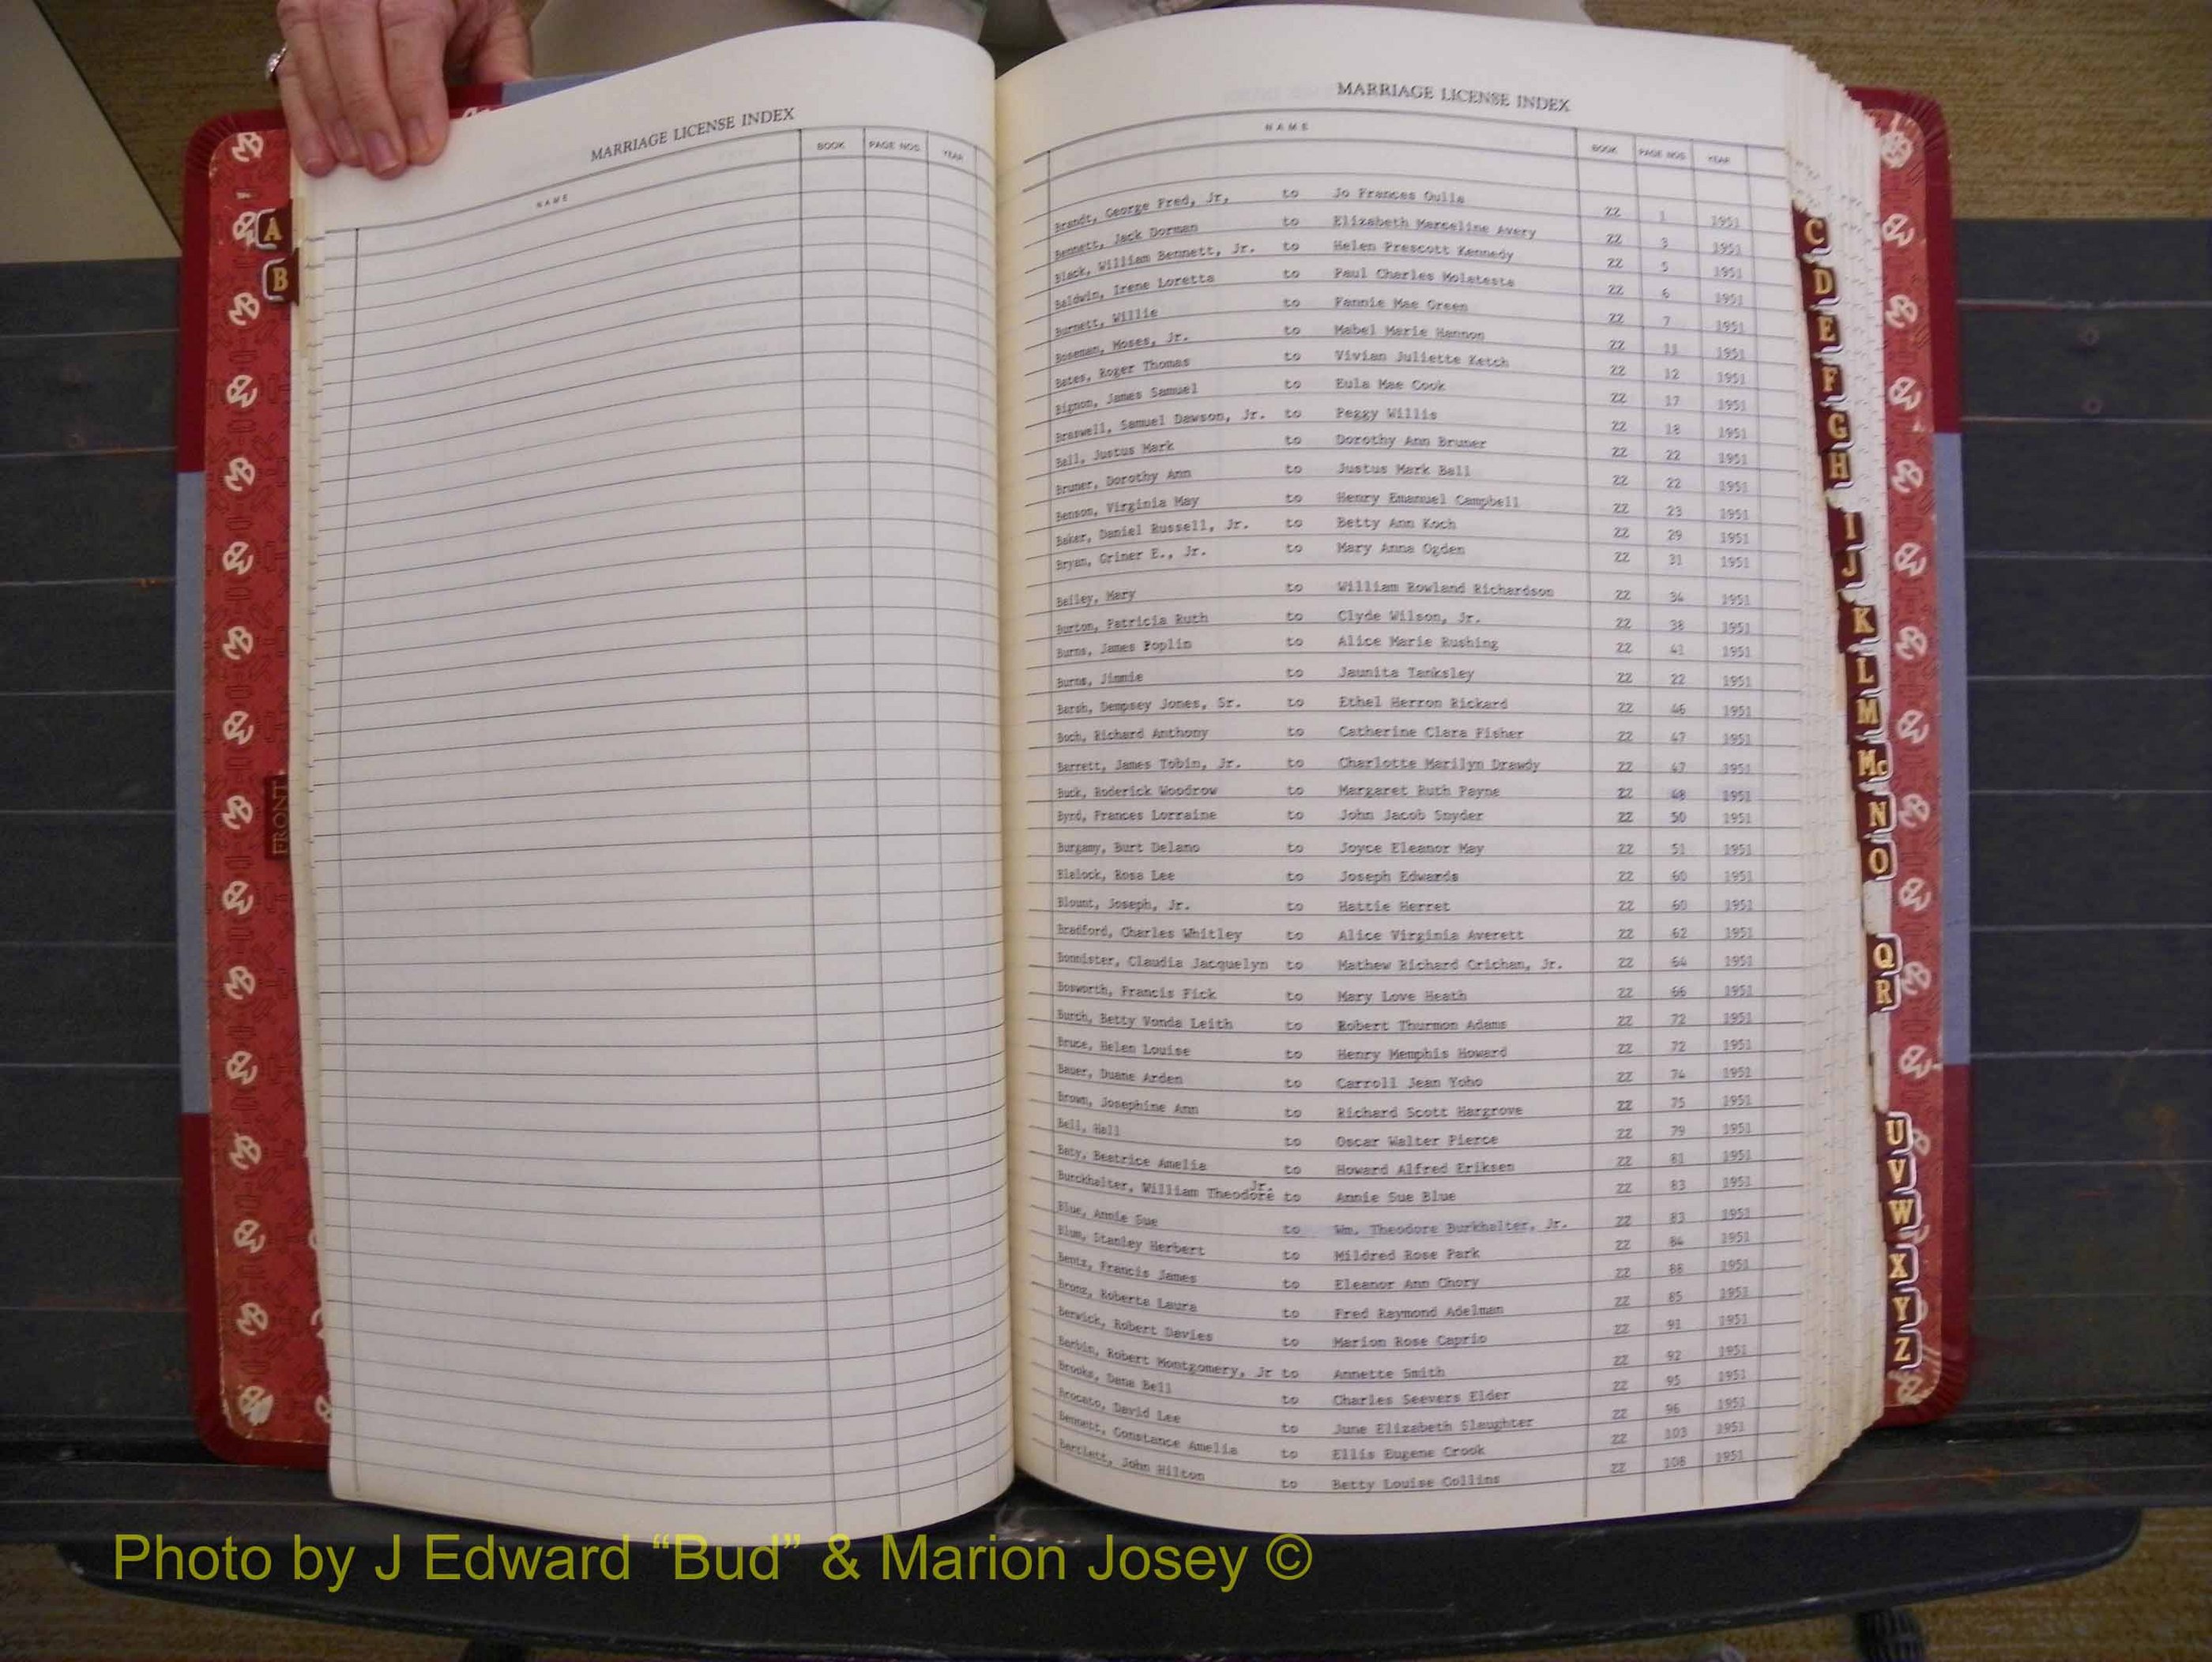 MARRIAGE LICENSE INDEX
NAME BOOK PAGE NOS. YEAR
A
B
FRONT
MARRIAGE LICENSE INDEX
NAME BOOK PAGE NOS. YEAR
Brandt, George Fred, Jr, to Jo Frances Oulla 22 1 1951
Bennett, Jack Dorman to Elizabeth Marceline Avery 22 3 1951
Black, William Bennett, Jr. to Helen Prescott Kennedy 22 5 1951
Baldwin, Irene Loretta to Paul Charles Molatesta 22 6 1951
Burnett, Willie to Fannie Mae Green 22 7 1951
Boseman, Moses, Jr. to Mabel Marie Hannon 22 11 1951
Bates, Roger Thomas to Vivian Juliette Ketch 22 12 1951
Bignon, James Samuel to Eula Mae Cook 22 17 1951
Braswell, Samuel Dawson, Jr. to Peggy Willis 22 18 1951
Ball, Justus Mark to Dorothy Ann Bruner 22 22 1951
Bruner, Dorothy Ann to Justus Mark Ball 22 22 1951
Benson, Virginia May to Henry Emanuel Campbell 22 23 1951
Baker, Daniel Russell, Jr. to Betty Ann Koch 22 29 1951
Bryan, Griner E., Jr. to Mary Anna Ogden 22 31 1951
Bailey, Mary to William Rowland Richardson 22 34 1951
Burton, Patricia Ruth to Clyde Wilson, Jr. 22 38 1951
Burns, James Poplin to Alice Marie Rushing 22 41 1951
Burns, Jimmie to Jaunita Tanksley 22 22 1951
Barsh, Dempsey Jones, Sr. to Ethel Herron Rickard 22 46 1951
Boch, Richard Anthony to Catherine Clara Fisher 22 47 1951
Barrett, James Tobin, Jr. to Charlotte Marilyn Drawdy 22 47 1951
Buck, Roderick Woodrow to Margaret Ruth Payne 22 48 1951
Byrd, Frances Lorraine to John Jacob Snyder 22 50 1951
Burgamy, Burt Delano to Joyce Eleanor May 22 51 1951
Blalock, Rosa Lee to Joseph Edwards 22 60 1951
Blount, Joseph, Jr. to Hattie Herret 22 60 1951
Bradford, Charles Whitley to Alice Virginia Averett 22 62 1951
Bonnister, Claudia Jacquelyn to Mathew Richard Crichan, Jr. 22 64 1951
Bosworth, Francis Fick to Mary Love Heath 22 66 1951
Burch, Betty Vonda Leith to Robert Thurmon Adams 22 72 1951
Bruce, Helen Louise to Henry Memphis Howard 22 72 1951
Bauer, Duane Arden to Carroll Jean Yoho 22 74 1951
Brown, Josephine Ann to Richard Scott Hargrove 22 75 1951
Bell, Hall to Oscar Walter Pierce 22 79 1951
Baty, Beatrice Amelia to Howard Alfred Eriksen 22 81 1951
Burckhalter, William Theodore Jr. to Annie Sue Blue 22 83 1951
Blue, Annie Sue to Wm. Theodore Burkhalter, Jr. 22 83 1951
Blum, Stanley Herbert to Mildred Rose Park 22 84 1951
Bentz, Francis James to Eleanor Ann Chory 22 88 1951
Bronz, Roberta Laura to Fred Raymond Adelman 22 85 1951
Berwick, Robert Davies to Marion Rose Caprio 22 91 1951
Barbin, Robert Montgomery, Jr to Annette Smith 22 92 1951
Brooks, Dana Bell to Charles Seevers Elder 22 95 1951
Brocato, David Lee to June Elizabeth Slaughter 22 96 1951
Bennett, Constance Amelia to Ellis Eugene Crook 22 103 1951
Bartlett, John Hilton to Betty Louise Collins 22 108 1951
C
D
E
F
G
H
I
J
K
L
M
Mc
N
O
Q
R
U
V
W
X
Y
Z
Photo by J Edward “Bud” & Marion Josey ©